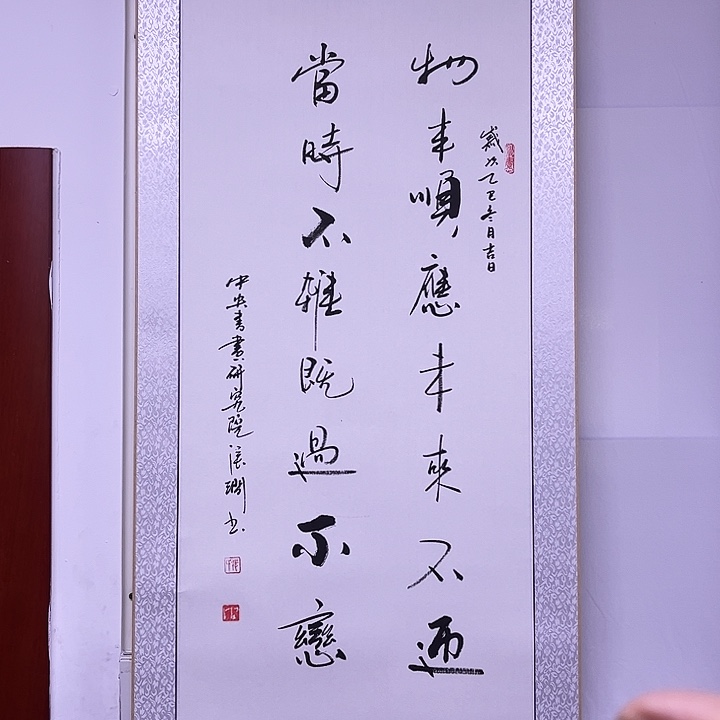 歲次乙巳冬月吉日
物来順應未來不迎
當時不雜既過不戀
中央書畫研究院書